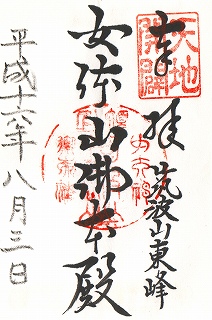 天地
開闢
奉拝
筑波山東峰
女体山御本殿
平成十六年八月三日